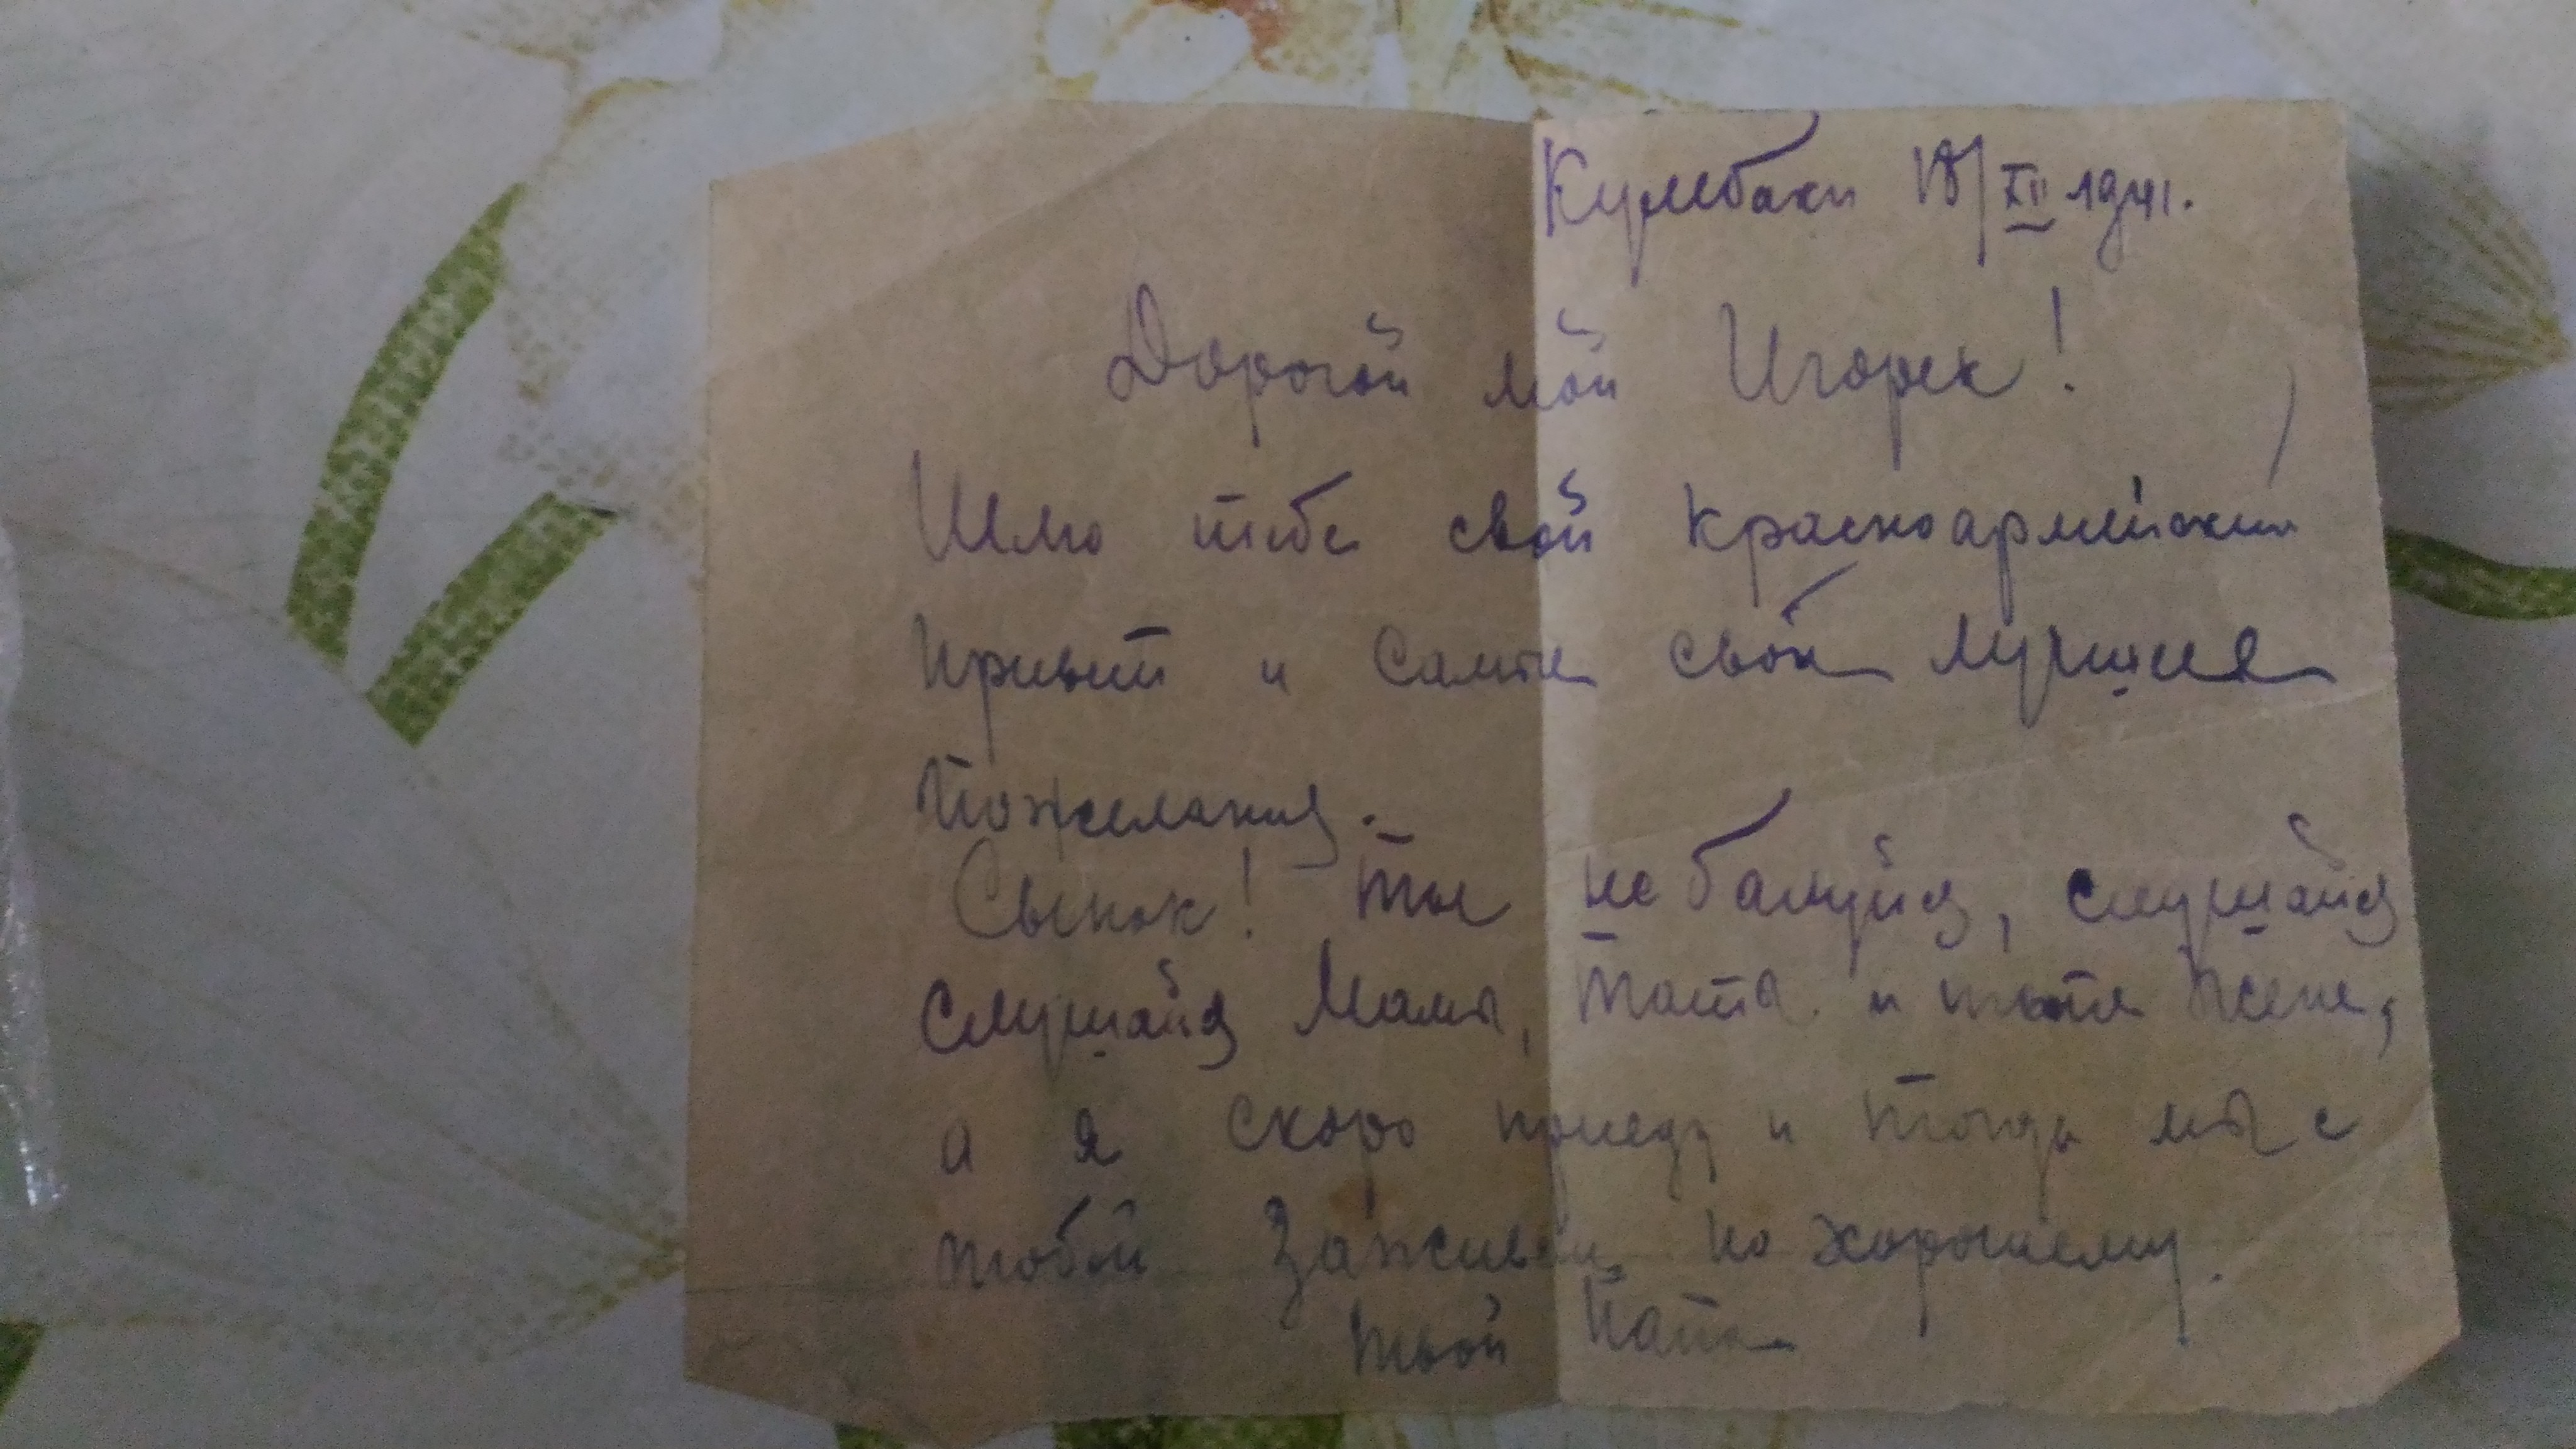 Кулебаки 18/XII 1941.
Дорогой мой Игорек!
Шлю тебе свой красноармейский
привет и самые свои лучшие
пожелания.
Сынок! Ты не балуйся, слушайся
слушайся Мамы, и тети Жени,
а я скоро приеду и тогда мы с
тобой заживем по хорошему.
твой папа